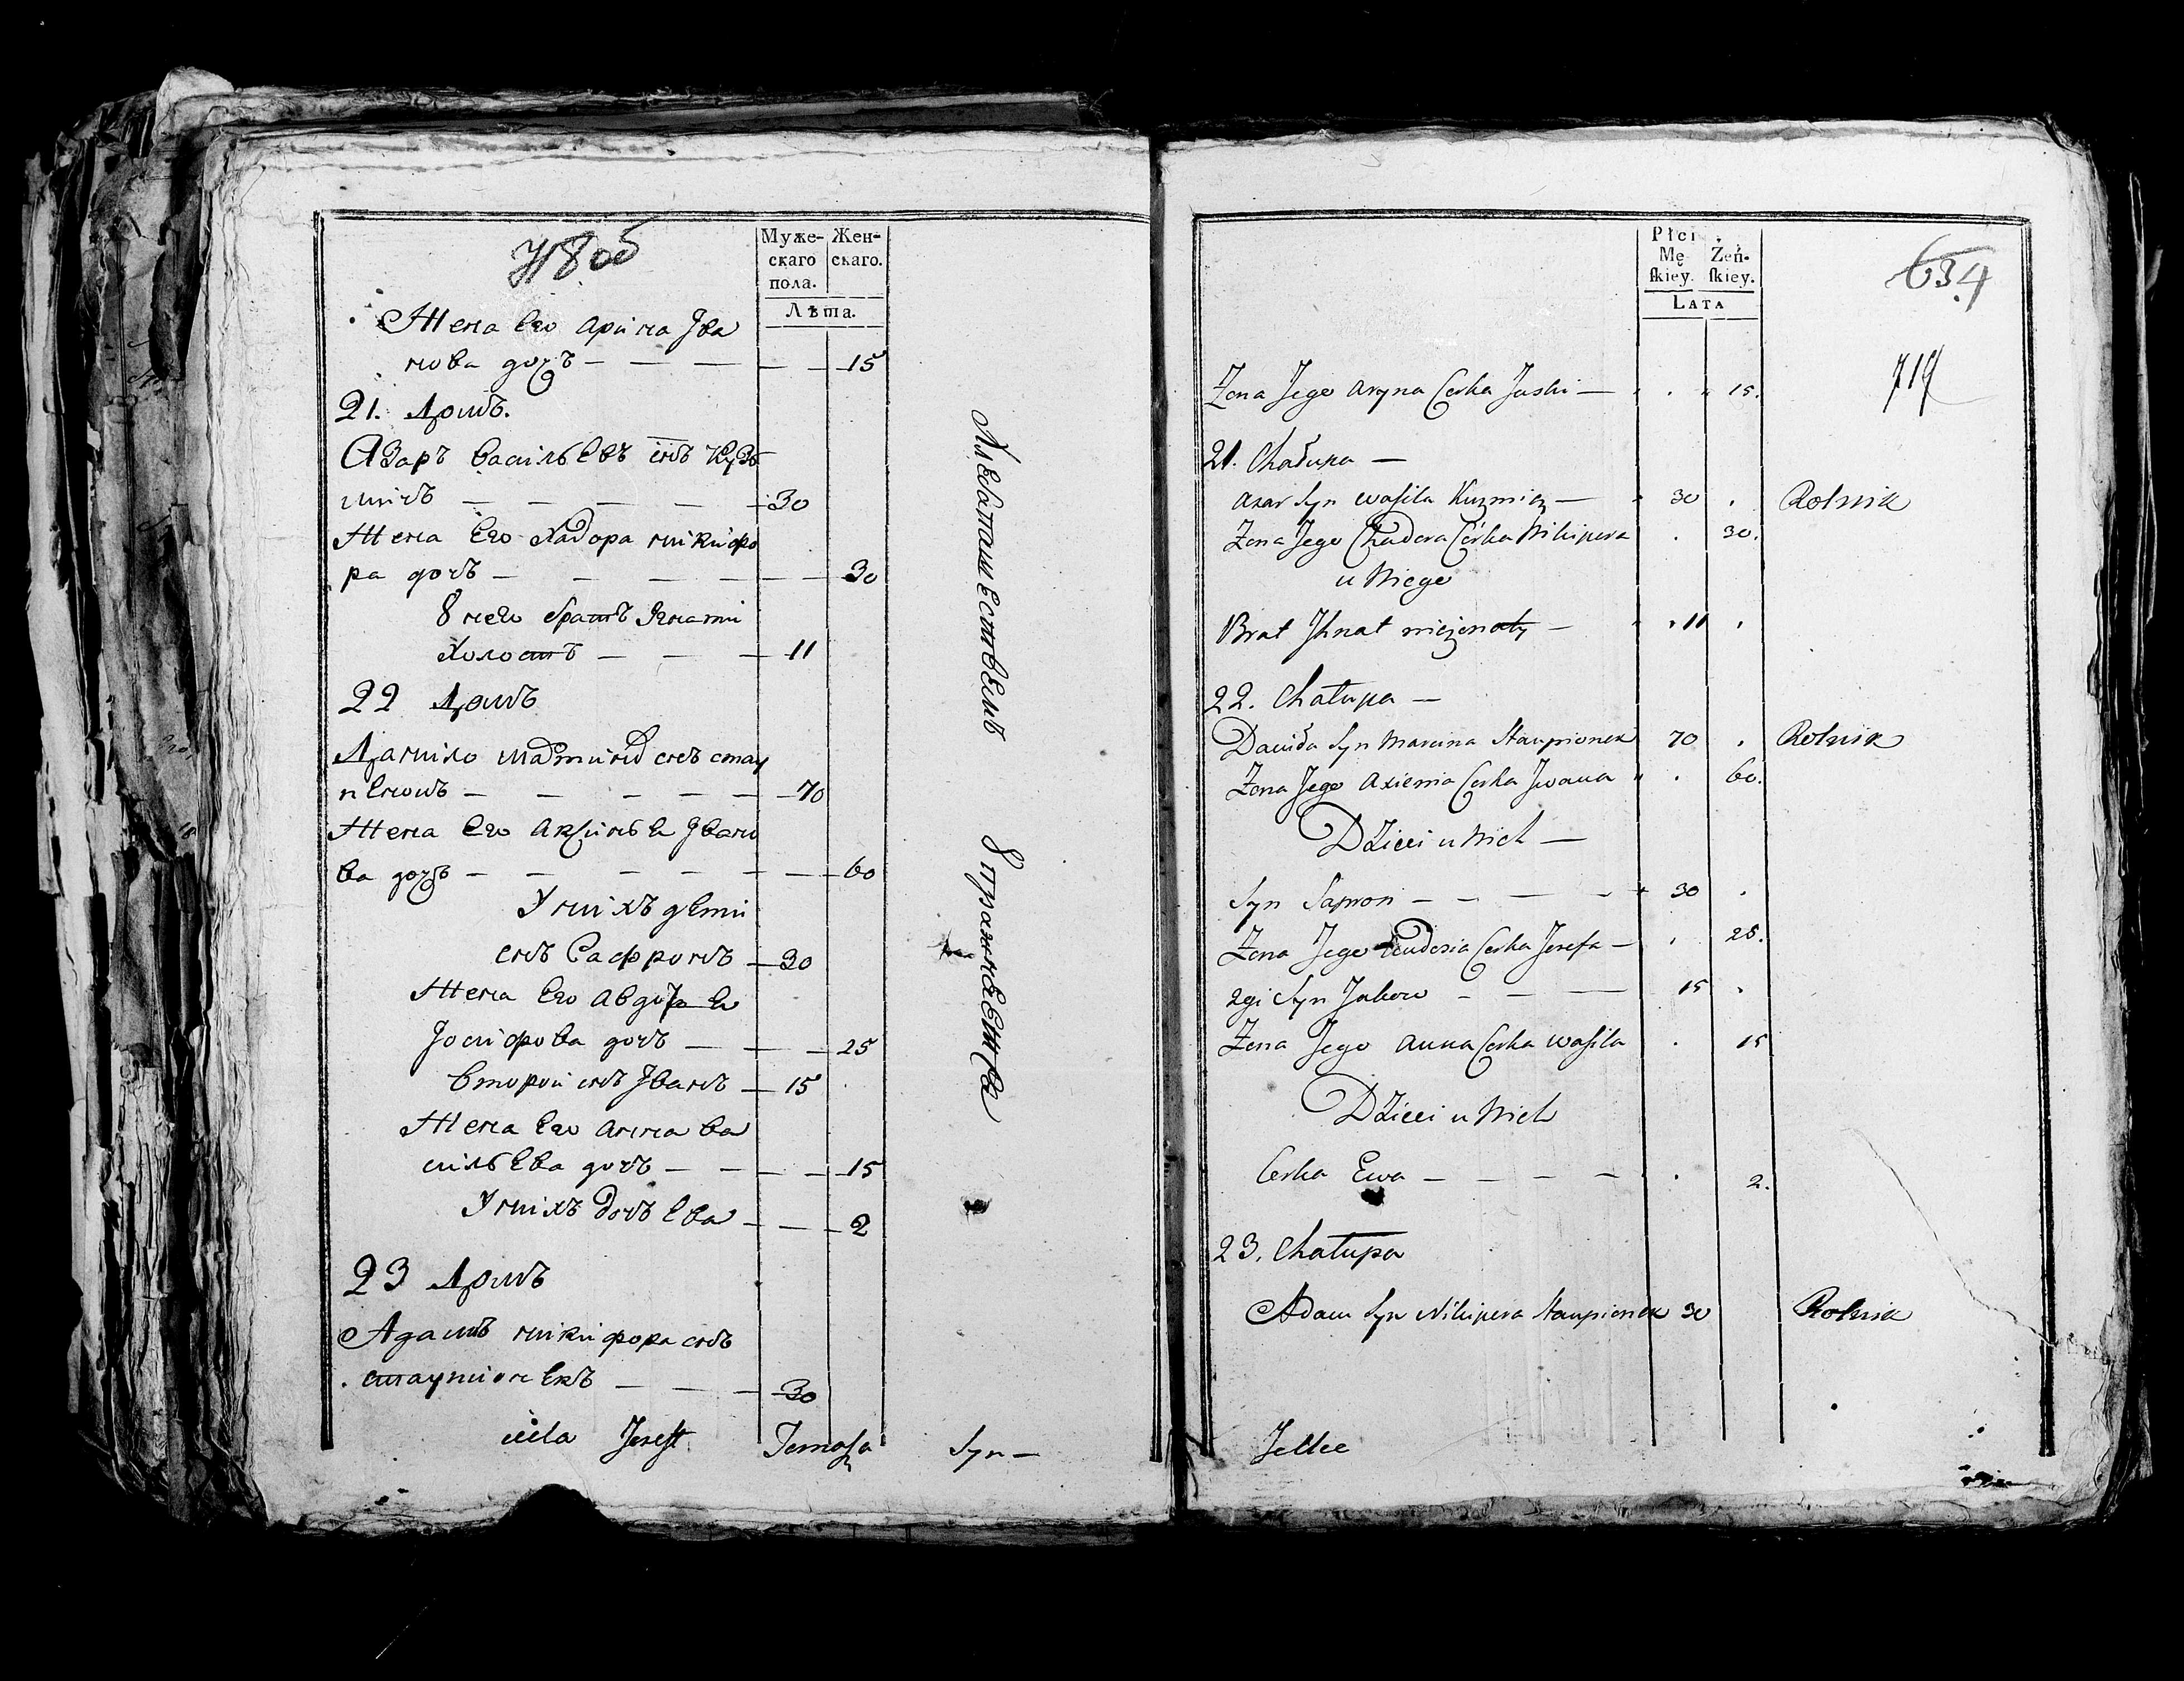 718 об
Муже-
скаго
пола.
Жен-
скаго.
Лѣта.
Жена Его Арина Iва
нова дочъ — — — 15
21. Домъ.
Азаръ Васильевъ снъ Кузь
мичъ — — — — 30
Жена Его Хадора Никифо
ра дочъ — — — — 30
У него братъ Игнати
Холостъ — — — 11
22 Домъ
Данило Мартина снъ Стау
пѣнокъ — — — — — 70
Жена Его Аксинья Iвано
ва дочъ — — — — — 60
У нихъ дети
снъ Сафронъ — 30
Жена Его Авдотья
Iосифова дочъ — — — 25
Второй снъ Iванъ — 15
Жена Его Анна Ва
сильева дочъ — — — 15
У нихъ дочъ Ева — — 2
23 Домъ
Адамъ Никифора снъ
Стаупионекъ — — — 30
Jozeff Tomasza Syn —
Хлебопашествомъ
упражняется
Płci
Mę
skiey.
Żeń-
skiey.
LATA
634
719
Żona Jego Aryna Corka Jaśki — 15.
21. Chałupa —
Azar Syn Wasila Kuzmicz — 30 Rolnik
Żona Jego Chadora Córka Nikipera 30.
u Niego
Brat Jhnat nieżonaty — 11
22. Chałupa —
Daniła Syn Marcina Staupionek 70 Rolnik
Żona Jego Axienia Corka Jwana 60.
Dzieci u Nich —
Syn Sapron — — — — 30
Żona Jego Eudosia Corka Jozefa — 25.
2gi Syn Jakow — — — 15
Żona Jego Anna Corka Wasila 15
Dzieci u Nich
Corka Ewa — — — — 2.
23. Chałupa
Adam Syn Nikipera Staupionek 30 Rolnik